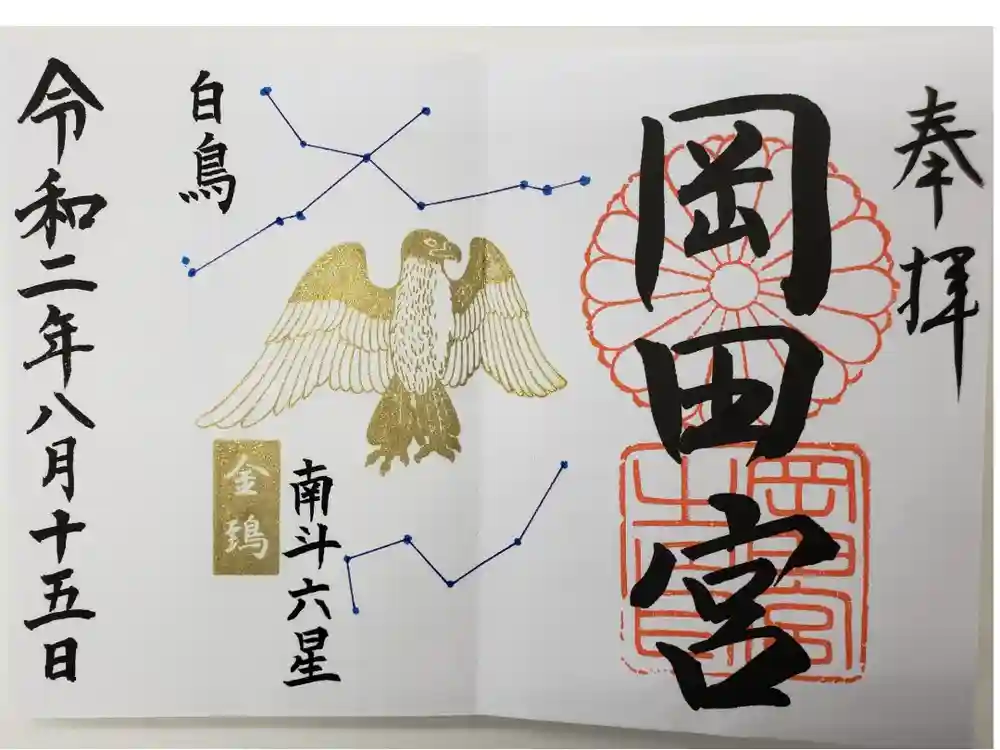 奉拝
岡田宮
白鳥
金鵄
南斗六星
令和二年八月十五日